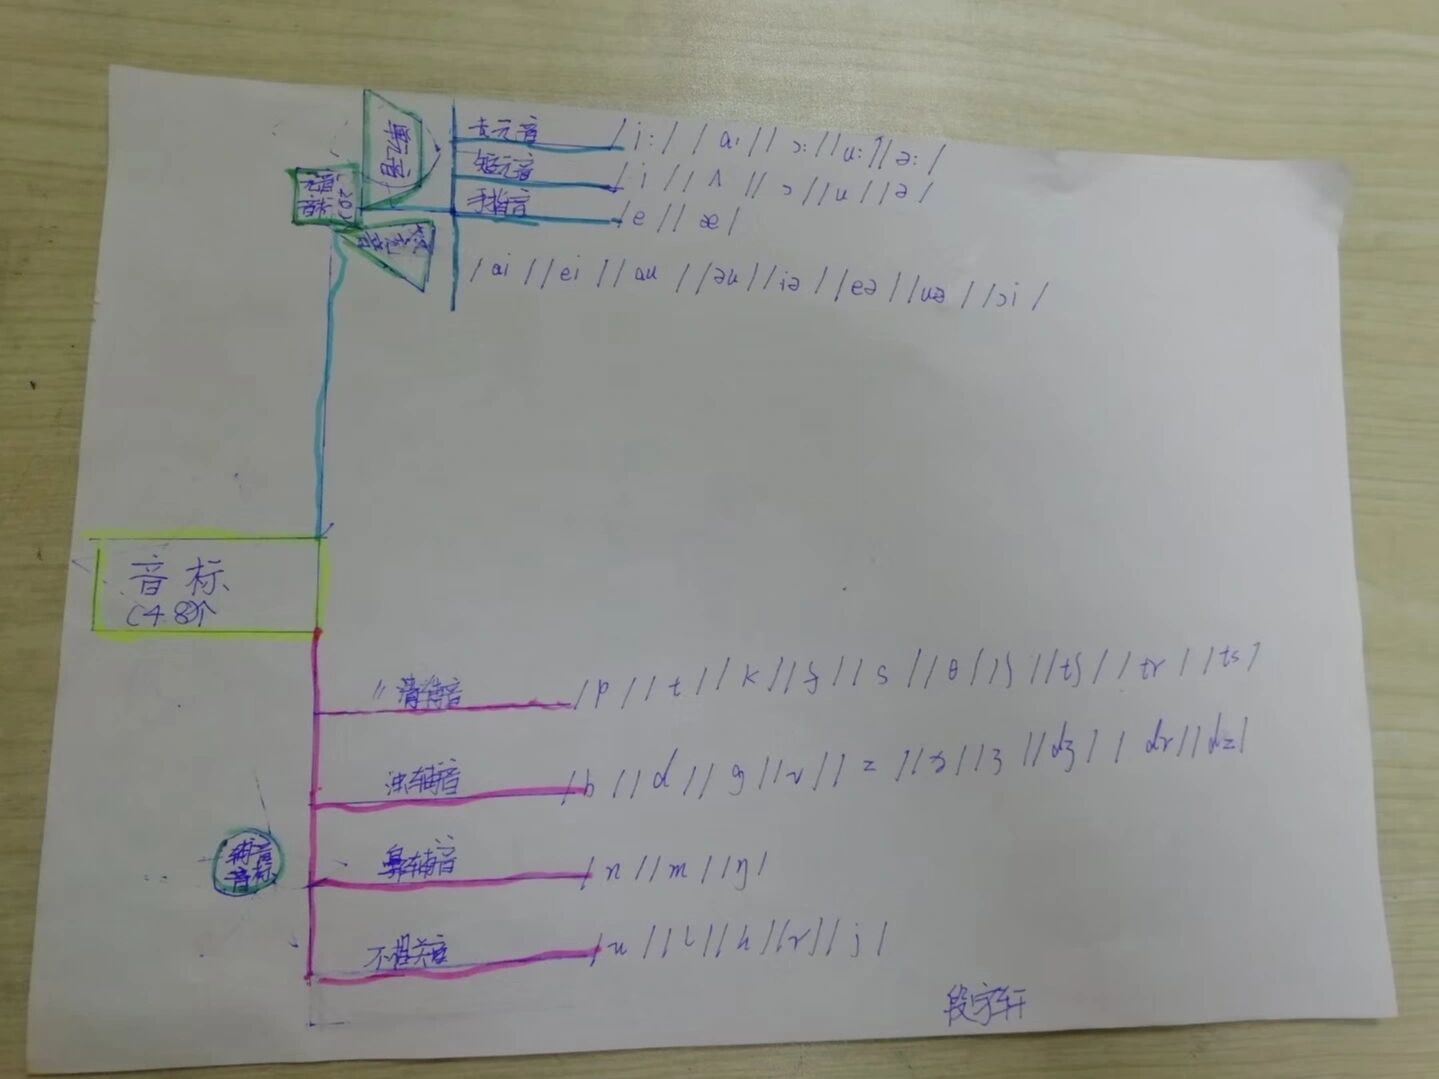 单元音
长元音 /i:/ /a:/ /ɔ:/ /u:/ /ə:/
元音音标(20)
短元音 /i/ /ʌ/ /ɔ/ /u/ /ə/
手指音 /e/ /æ/
双元音
/ai/ /ei/ /au/ /əu/ /iə/ /eə/ /uə/ /ɔi/
音标
(48)个
清辅音 /p/ /t/ /k/ /f/ /s/ /θ/ /ʃ/ /tʃ/ /tr/ /ts/
浊辅音 /b/ /d/ /g/ /v/ /z/ /ð/ /ʒ/ /dʒ/ /dr/ /dz/
辅音
音标
鼻辅音 /n/ /m/ /ŋ/
不相关音 /l/ /h/ /r/ /j/